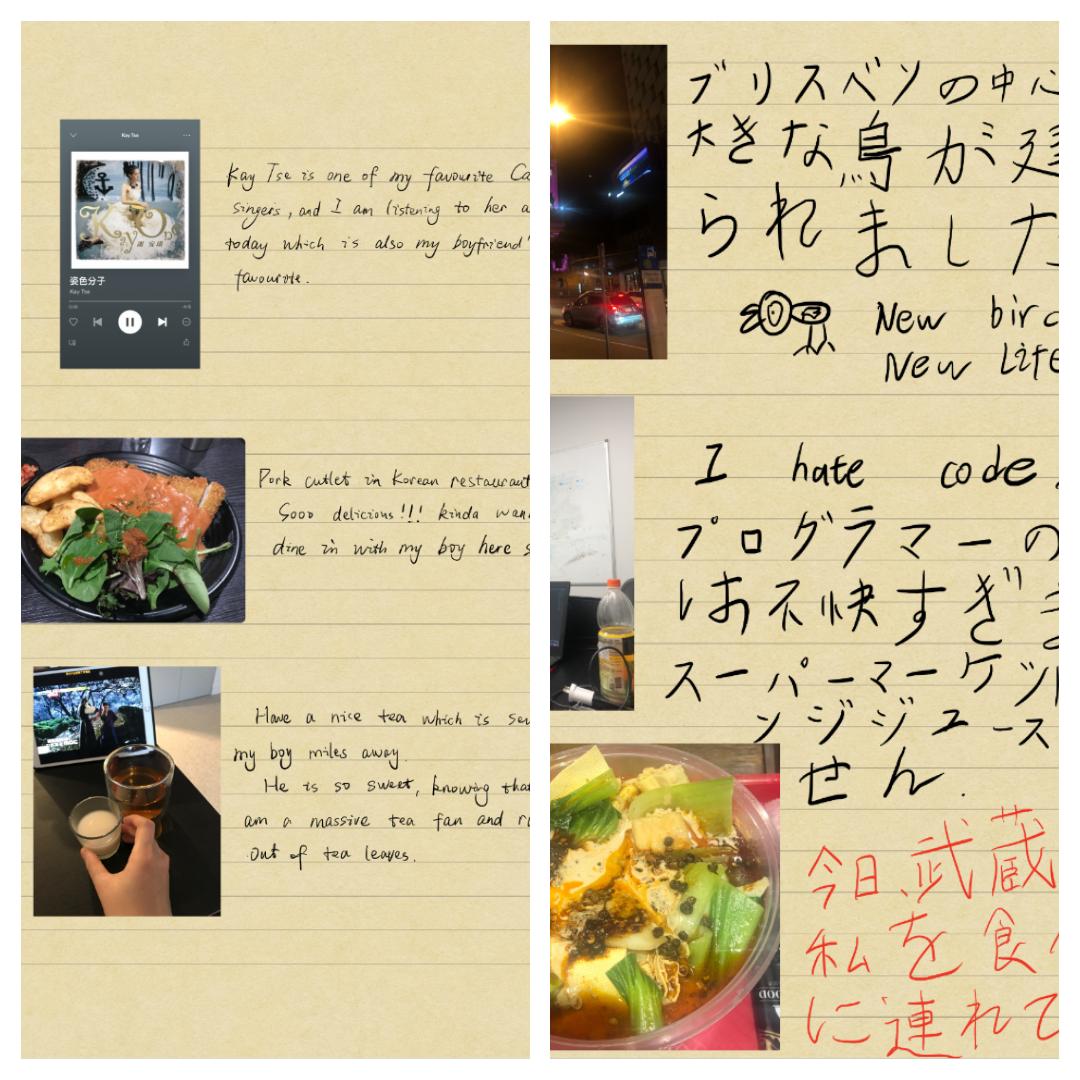 Kay Tse
姿色分子
Kay Tse
Kay Tse is one of my favourite Ca
singers, and I am listening to her a
today which is also my boyfriend'
favourite.
Pork cutlet in Korean restaurant
Sooo delicious!!! kinda wan
dine in with my boy here s
Have a nice tea which is se
my boy miles away.
He is so sweet, knowing that
am a massive tea fan and r
out of tea leaves.
ブリスベンの中心
大きな鳥が建
られました
New bird
New Life
I hate code.
プログラマーの
は不快すぎま
スーパーマーケット
ンジジュース
せん.
今日、武蔵
私を食べ
に連れて